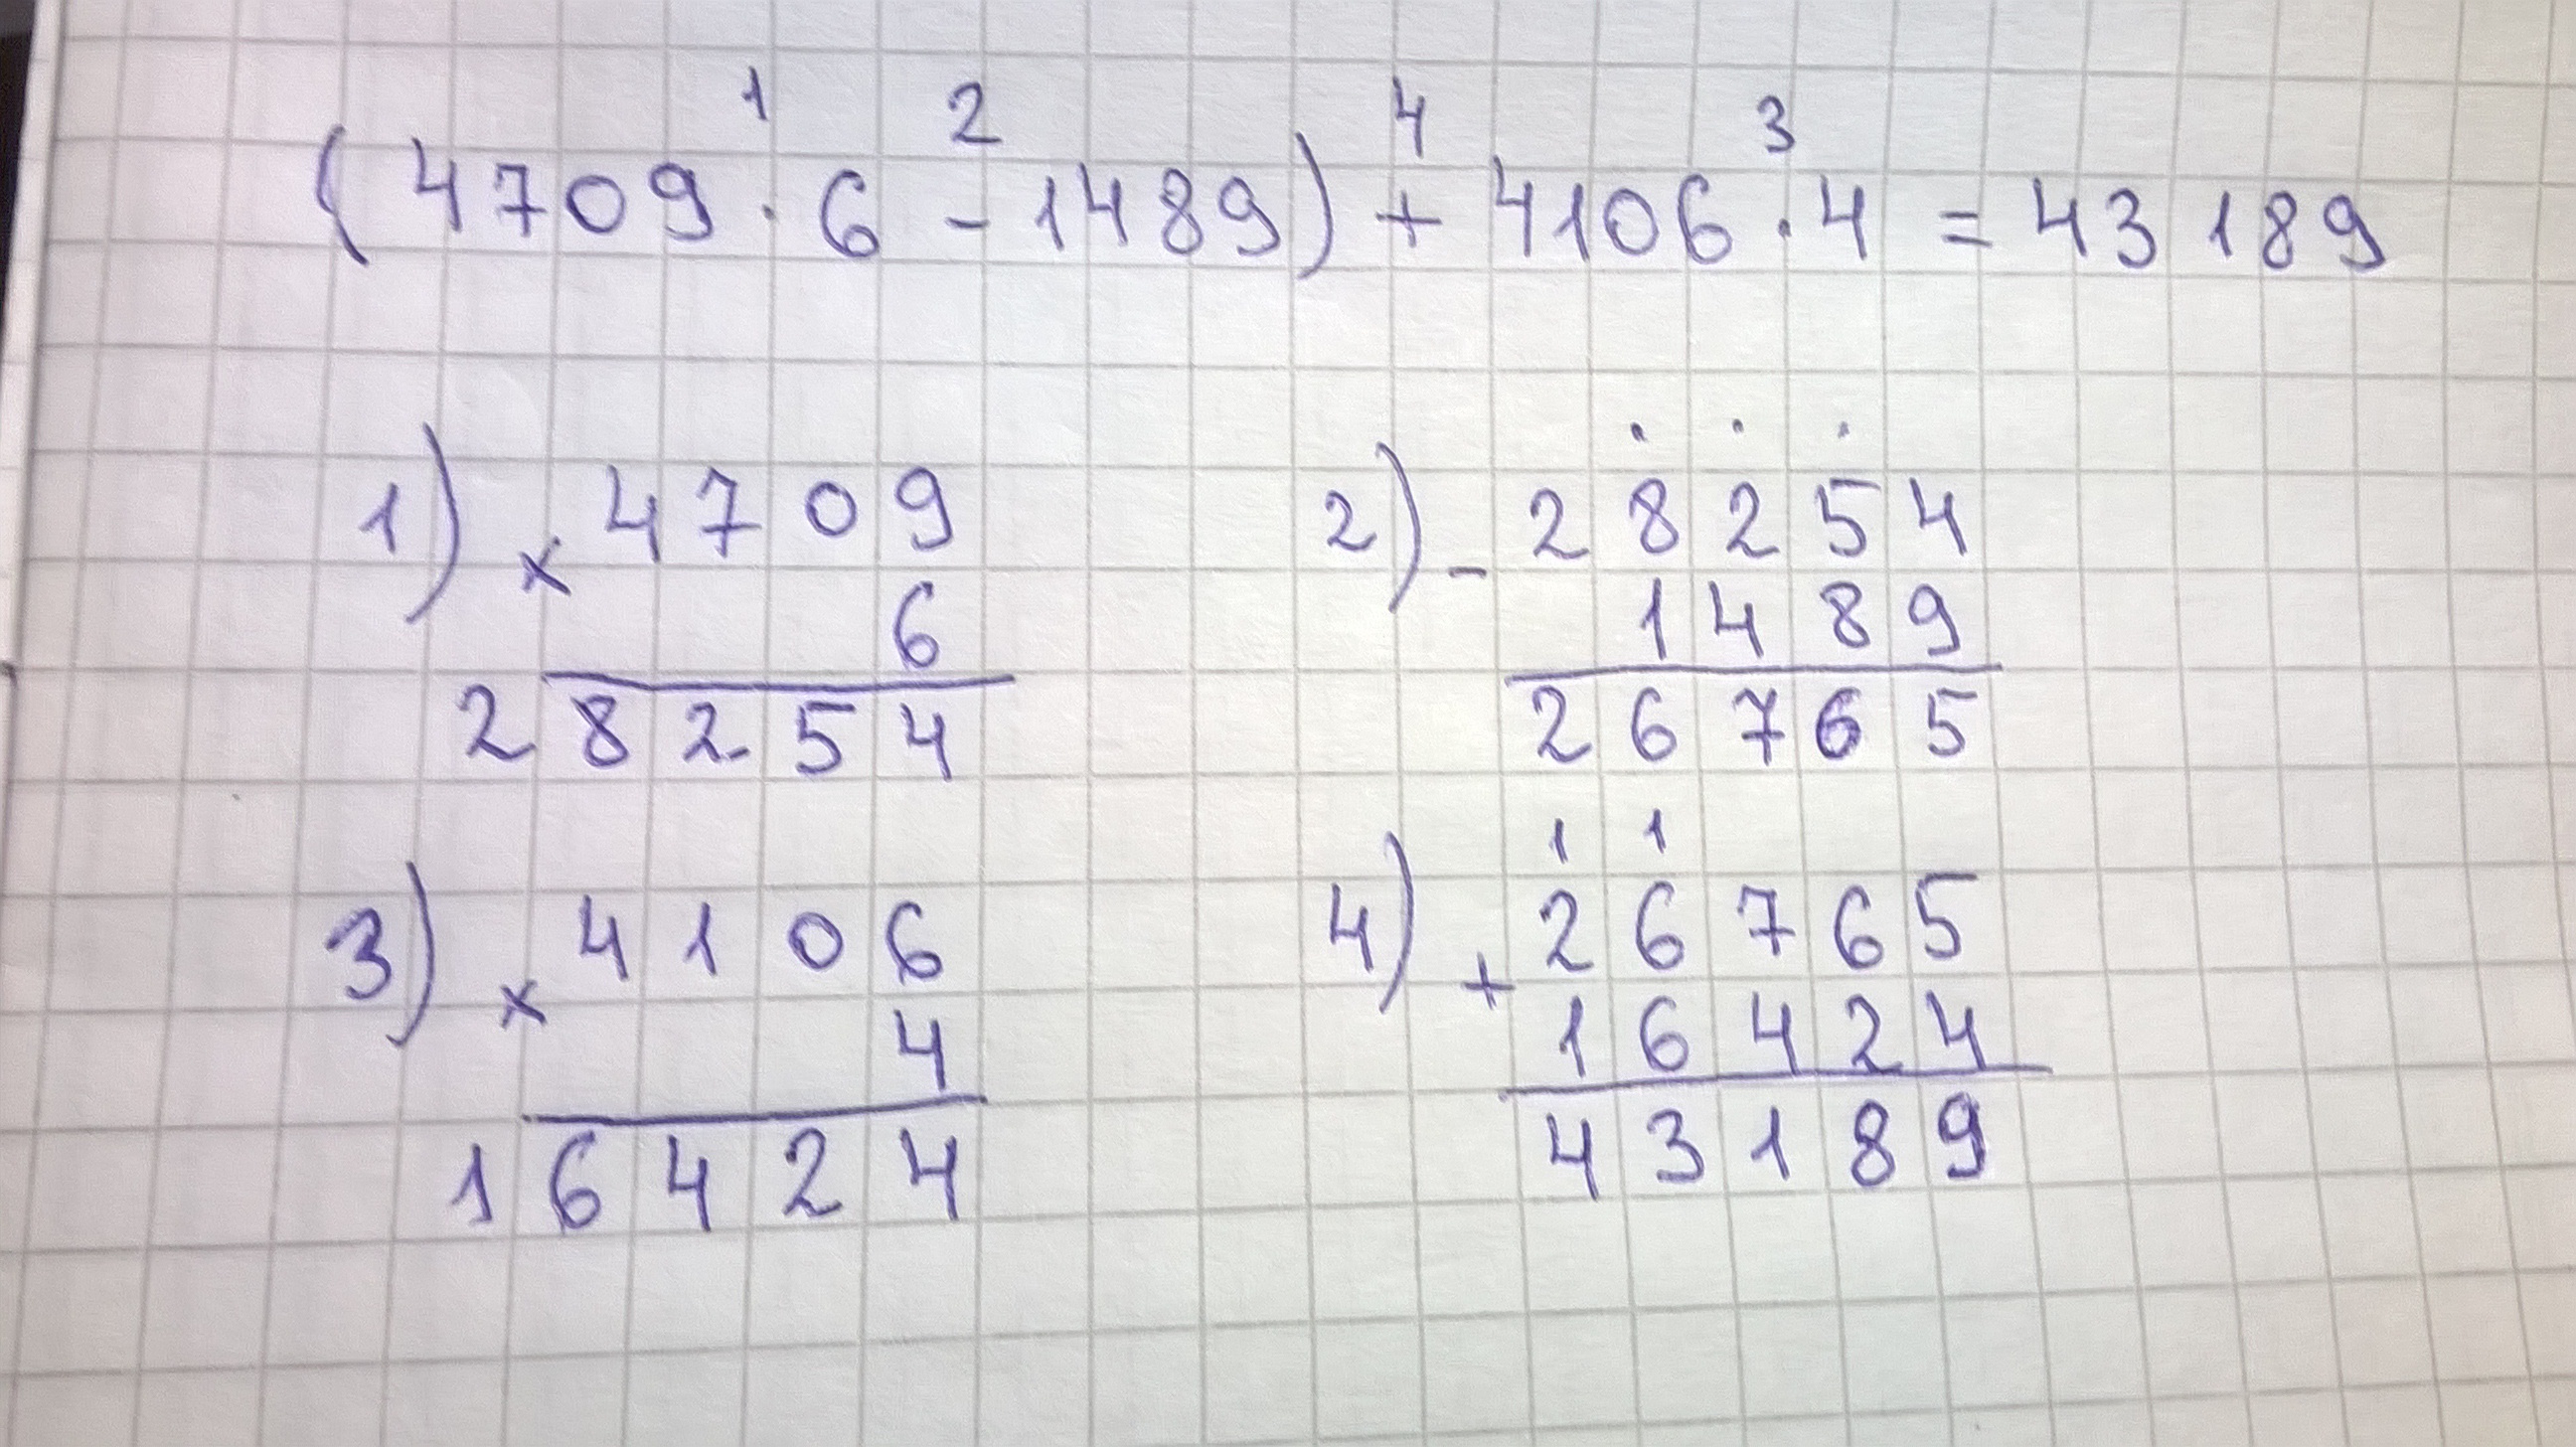 1 2 4 3
(4709 · 6 - 1489) + 4106 · 4 = 43189
1) × 4709
6
28254
2) - 28254
1489
26765
3) × 4106
4
16424
1 1
4) + 26765
16424
43189